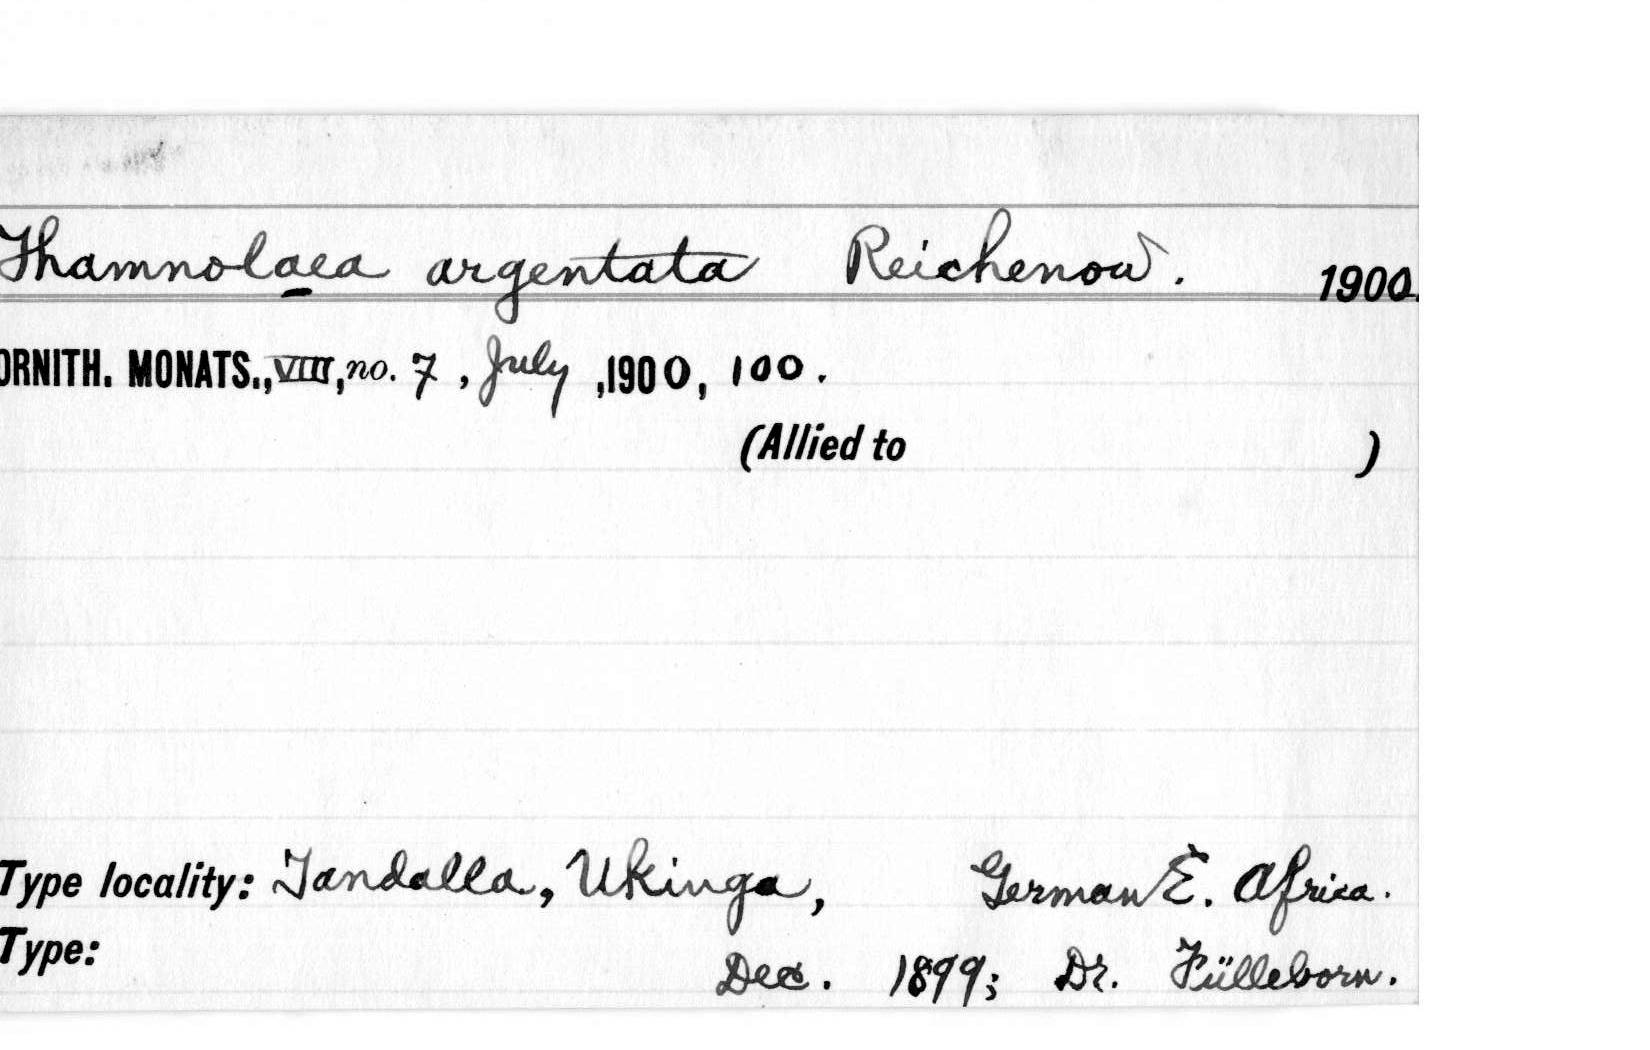 Thamnolaea argentata Reichenow. 1900.
ORNITH. MONATS., VIII, no. 7, July, 1900, 100.
(Allied to )
Type locality: Tandalla, Ukinga, German E. Africa.
Type: Dec. 1899; Dr. Fülleborn.